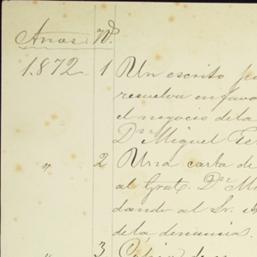 Anos Nº
1872. 1 Un escrito
resuelva en favo
el negocio de la
Dn Miguel
" 2 Una carta de
al Grat. Dn Mi
dando al Sr.
de la denuncia.
" 3